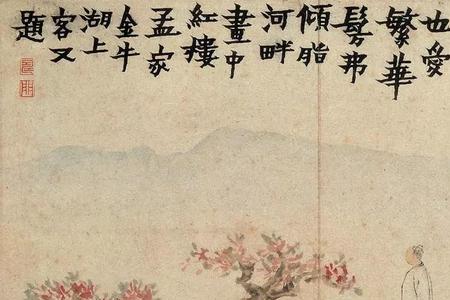 也愛
繁華
髣弗
傾脂
河畔
畫中
紅樓
孟家
金牛
湖上
客又
題